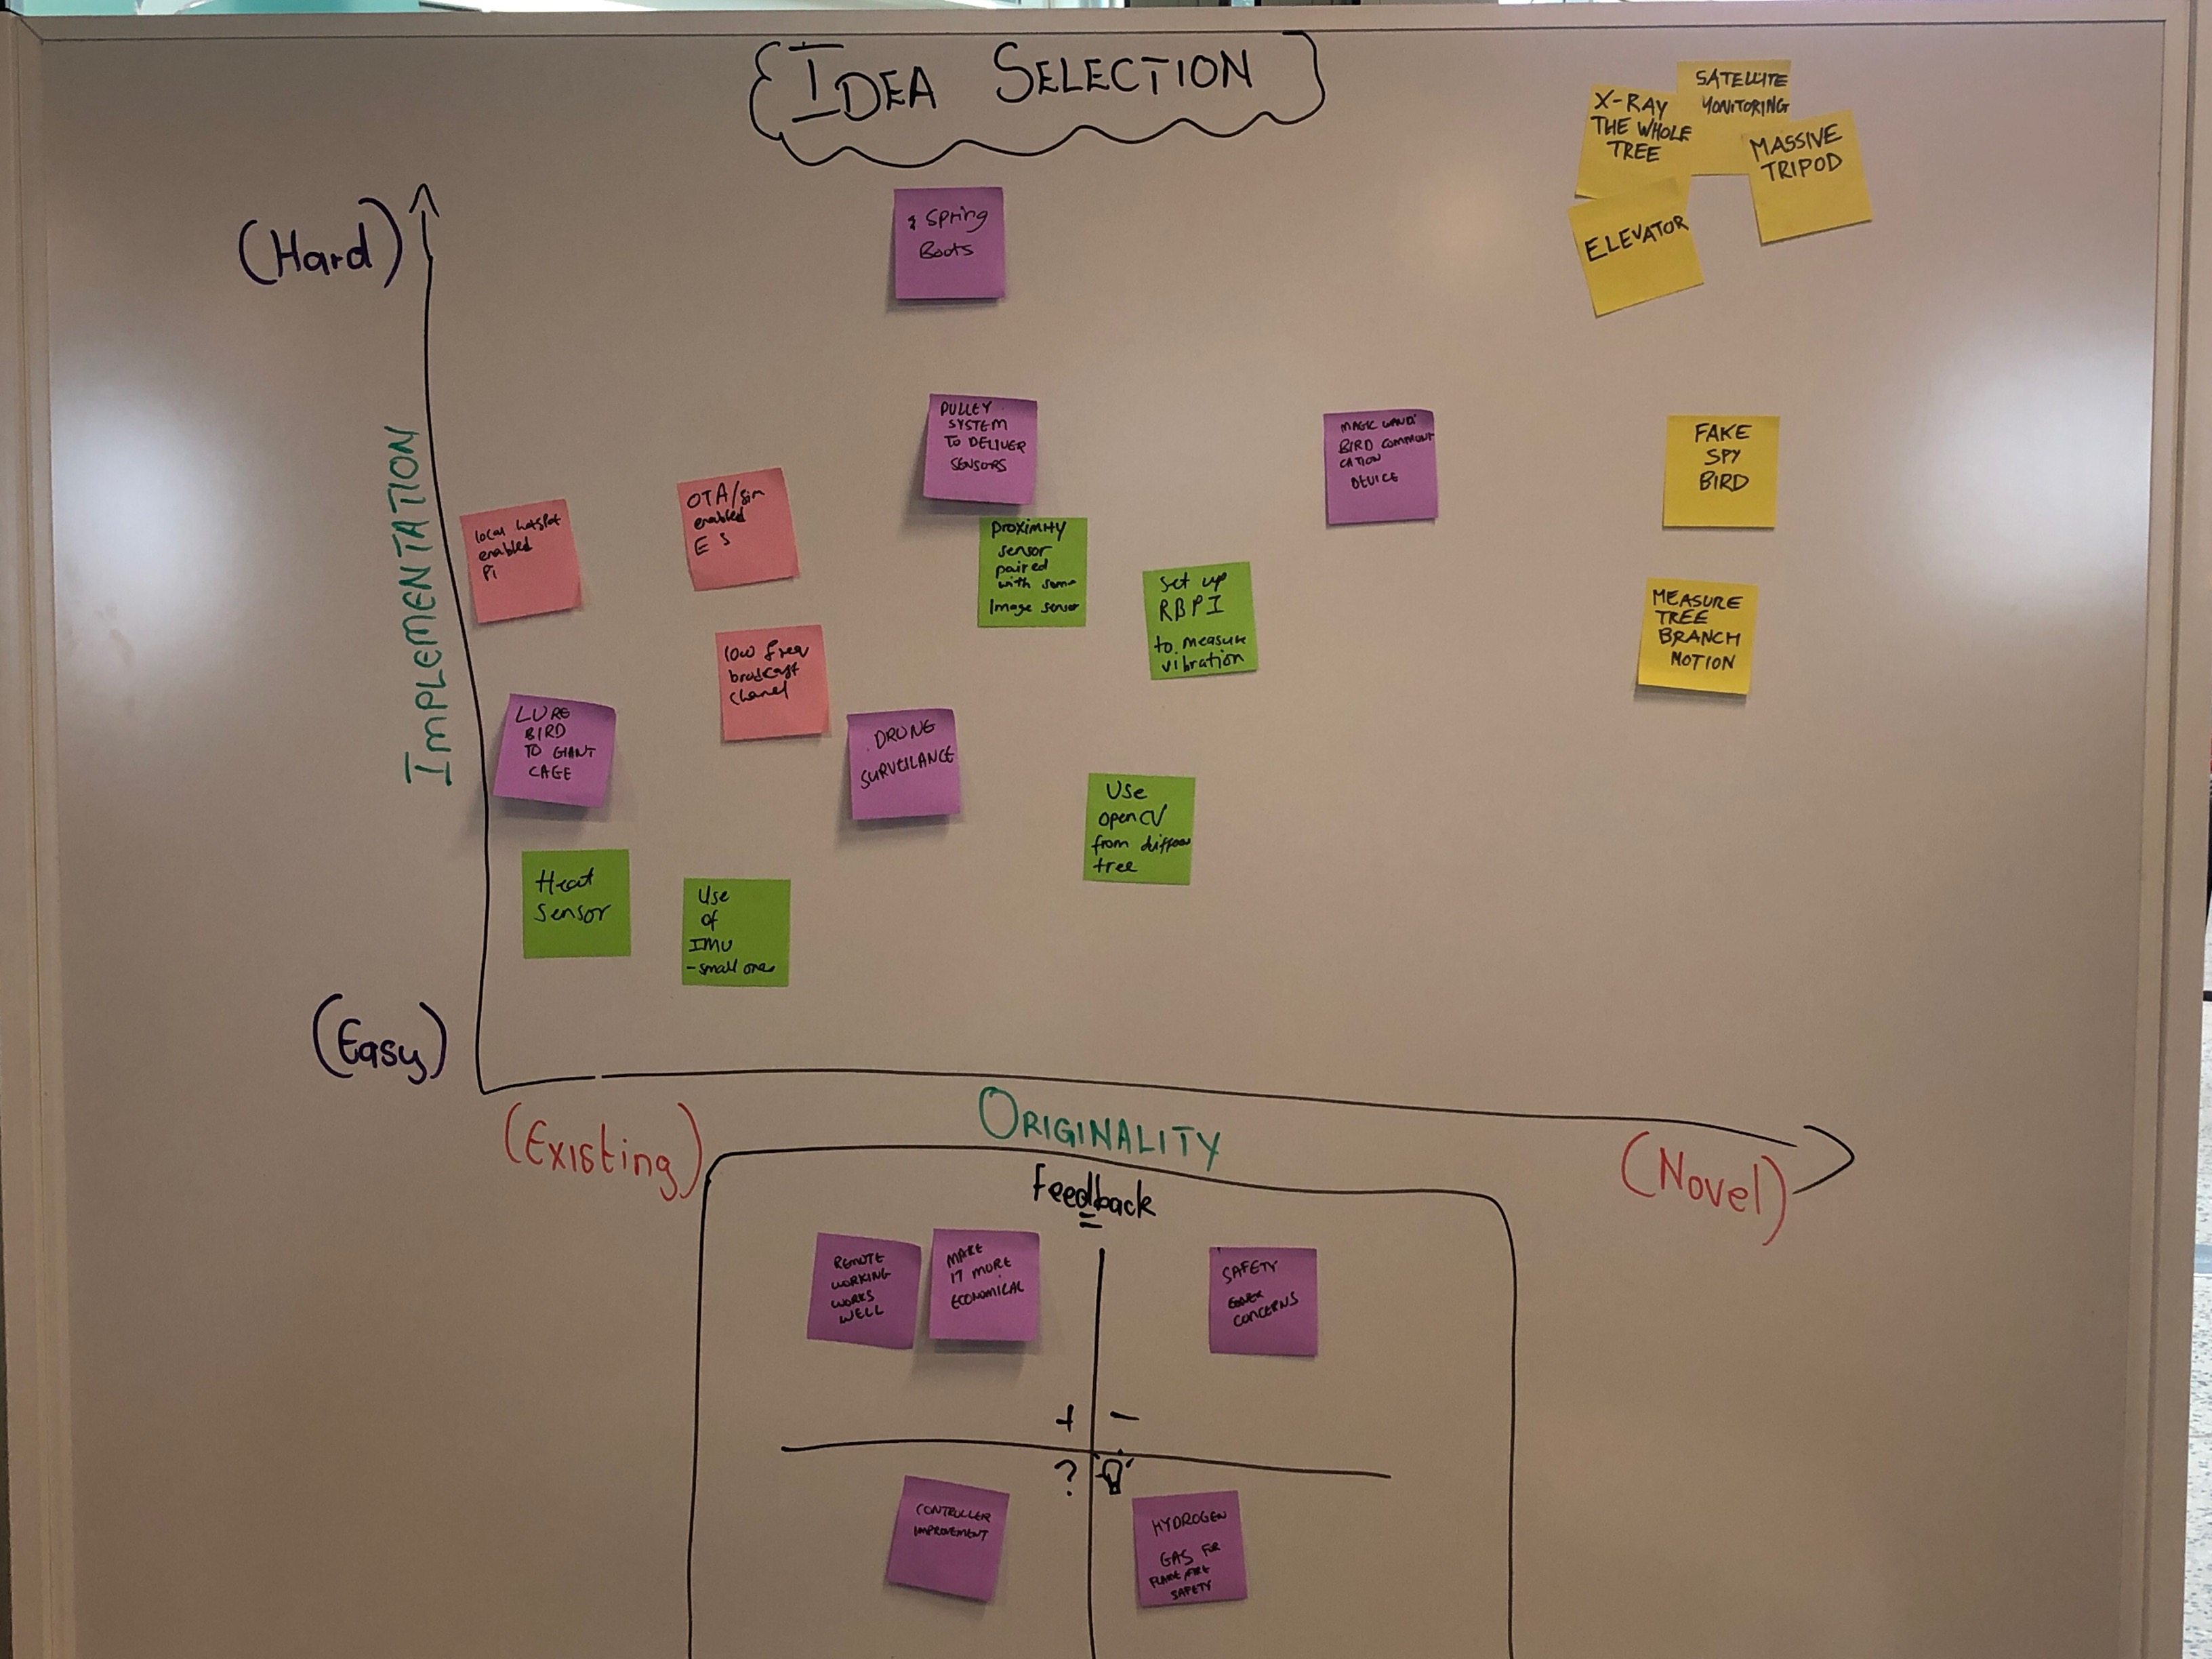 IDEA SELECTION
X-RAY
THE WHOLE
TREE
SATELLITE
MONITORING
MASSIVE
TRIPOD
ELEVATOR
(Hard)
Spring
Boots
PULLEY
SYSTEM
TO DELIVER
SENSORS
MAGIC WAND:
BIRD COMMUNI
CATION
DEVICE
FAKE
SPY
BIRD
local hotspot
enabled
Pi
OTA/sim
enabled
E S
Proximity
sensor
paired
with some
Image sensor
Set up
RBPI
to measure
vibration
MEASURE
TREE
BRANCH
MOTION
IMPLEMENTATION
low freq
broadcast
chanel
LURE
BIRD
TO GIANT
CAGE
DRONE
SURVEILANCE
Use
openCV
from
tree
Heat
Sensor
Use
of
IMU
- small one
(Easy)
(Existing)
ORIGINALITY
(Novel)
Feedback
REMOTE
WORKING
WORKS
WELL
MAKE
IT MORE
ECONOMICAL
SAFETY
CONCERNS
+ -
?
CONTROLLER
IMPROVEMENT
HYDROGEN
GAS FOR
FIRE
SAFETY